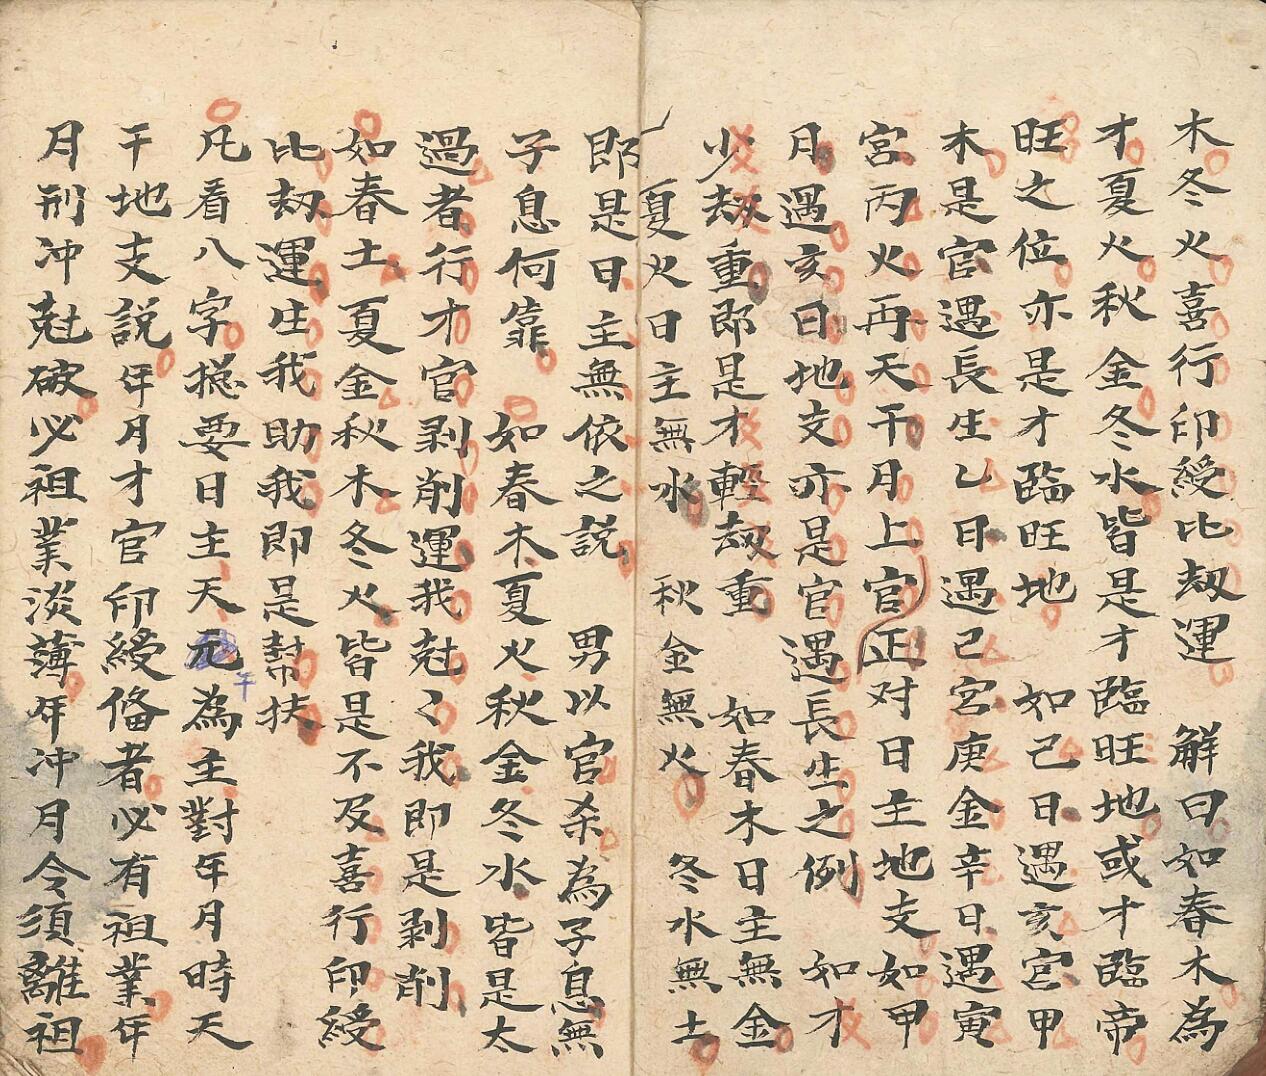 木冬火喜行印綬比刼運　解曰如春木為
才夏火秋金冬水皆是才臨旺地或才臨帝
旺之位亦是才臨旺地　如己日遇亥宮甲
木是官遇長生乙日遇己宮庚金辛日遇寅
宮丙火再天干月上官正对日主地支如甲
月遇亥日地支亦是官遇長生之例　如才
少刼重即是才輕刼重　如春木日主無金
夏火日主無水　秋金無火　冬水無土
即是日主無依之説　男以官杀為子息無
子息何靠　如春木夏火秋金冬水皆是太
過者行才官剥削運我尅〻我即是剥削
如春土夏金秋木冬火皆是不及喜行印綬
比刼運生我助我即是幫扶
凡看八字搃要日主天元為主對年月時天
午
干地支説年月才官印綬俻者必有祖業年
月刑冲尅破必祖業淡薄年冲月令須離祖